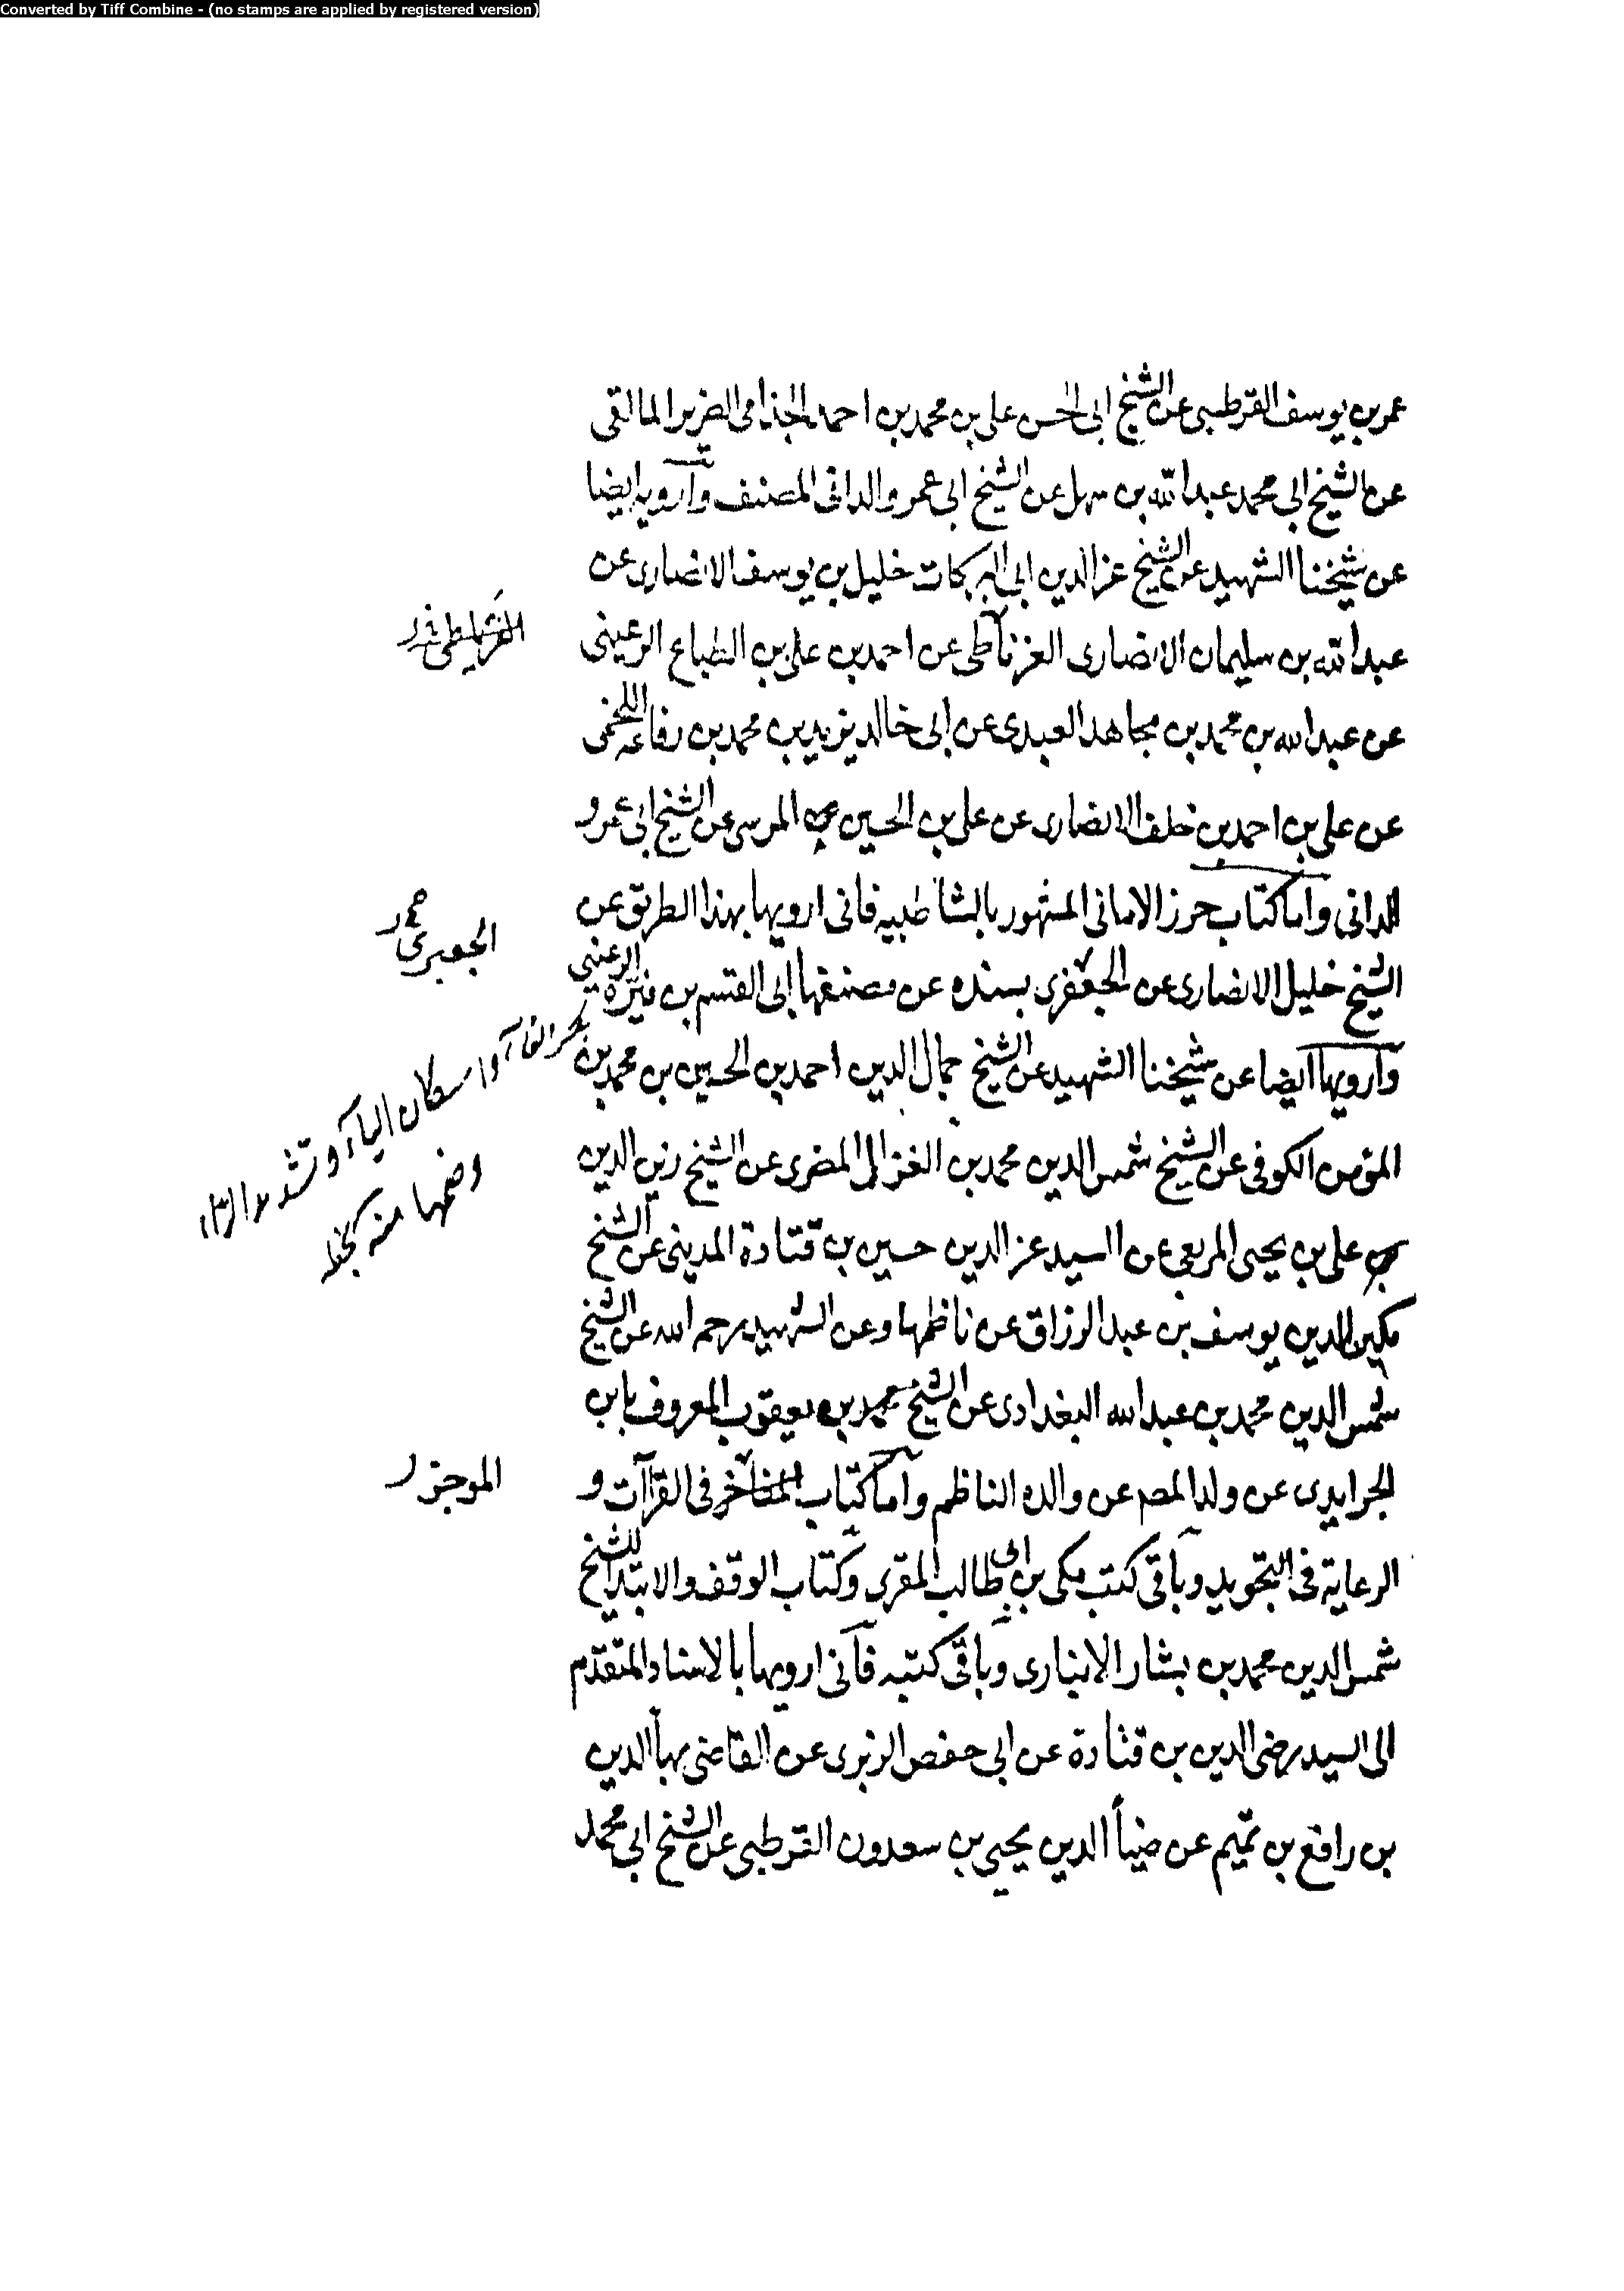 Converted by Tiff Combine - (no stamps are applied by registered version)
عمر بن يوسف القرطبى عن الشيخ ابى الحسن على بن محمد بن احمد الجذامى الضرير المالقى
عن الشيخ ابى محمد عبد الله بن سهل عن الشيخ ابى عمرو الدانى المصنف وارويه ايضا
عن شيخنا الشهيد عن الشيخ عز الدين ابى البركات خليل بن يوسف الانصارى عن
عبد الله بن سليمان الانصارى الغرناطى عن احمد بن على بن الطباع الرعينى
عن عبد الله بن محمد بن مجاهد العبدى عن ابى خالد يزيد بن محمد بن رفاعه اللخمى
عن على بن احمد بن خلف الانصارى عن على بن الحسين المرسى عن الشيخ ابى عمرو
الدانى واما كتاب حرز الامانى المشهور بالشاطبيه فانى ارويها بهذا الطريق عن
الجعبرى
الشيخ خليل الانصارى عن الجعفرى بسنده عن مصنفها ابى القسم بن فيره الرعينى
بكسر الفآء واسكان اليآء وتشديد الراء
وضمها منه بخطه
وارويها ايضا عن شيخنا الشهيد عن الشيخ جمال الدين احمد بن الحسين بن محمد بن
المؤمن الكوفى عن الشيخ شمس الدين محمد بن الغزالى المضرى عن الشيخ زين الدين
على بن يحيى المربعى عن السيد عز الدين حسين بن قتادة المدينى عن الشيخ
مكين الدين يوسف بن عبد الرزاق عن ناظمها وعن الشهيد رحمه الله عن الشيخ
شمس الدين محمد بن عبد الله البغدادى عن الشيخ محمد بن يعقوب المعروف بابن
الجرايدى عن ولد المصم عن والده الناظم واما كتاب فى القراآت و
الموجز
الرعاية فى التجويد وباقى كتب مكى بن ابى طالب المقرى وكتاب الوقف والابتدا للشيخ
شمس الدين محمد بن بشار الانبارى وباقى كتبه فانى ارويها بالاسناد المتقدم
الى السيد رضى الدين بن قتادة عن ابى حفص الزبرى عن القاضى بهاء الدين
بن رافع بن تميم عن ضياء الدين يحيى بن سعدون القرطبى عن الشيخ ابى محمد